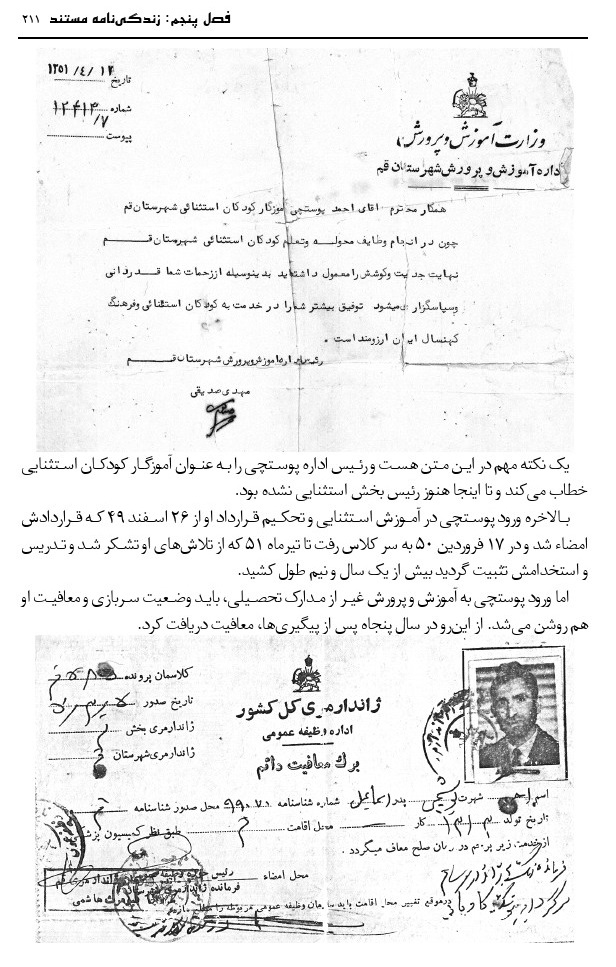 فصل پنجم: زندگی‌نامه مستند ۲۱۱
تاریخ ۱۳۵۱/۴/۱۴
شماره ۱۲۴۱۳/۷
پیوست
وزارت آموزش و پرورش
اداره آموزش و پرورش شهرستان قم
همکار محترم آقای احمد پوستچی آموزگار کودکان استثنائی شهرستان قم
چون در انجام وظایف محوله و تعلیم کودکان استثنائی شهرستان قم
نهایت جدیت و کوشش را معمول داشته‌اید بدینوسیله از زحمات شما قدردانی
و سپاسگزاری میشود توفیق بیشتر شما را در خدمت به کودکان استثنائی و فرهنگ
کهنسال ایران آرزومند است.
رئیس اداره آموزش و پرورش شهرستان قم
مهدی صدیقی
یک نکته مهم در این متن هست و رئیس اداره پوستچی را به عنوان آموزگار کودکان استثنایی
خطاب می‌کند و تا اینجا هنوز رئیس بخش استثنایی نشده بود.
بالاخره ورود پوستچی در آموزش استثنایی و تحکیم قرارداد او از ۲۶ اسفند ۴۹ که قراردادش
امضاء شد و در ۱۷ فروردین ۵۰ به سر کلاس رفت تا تیرماه ۵۱ که از تلاش‌های او تشکر شد و تدریس
و استخدامش تثبیت گردید بیش از یک سال و نیم طول کشید.
اما ورود پوستچی به آموزش و پرورش غیر از مدارک تحصیلی، باید وضعیت سربازی و معافیت او
هم روشن می‌شد. از این‌رو در سال پنجاه پس از پیگیری‌ها، معافیت دریافت کرد.
کلاسمان پرونده
تاریخ صدور
ژاندارمری بخش
ژاندارمری شهرستان
ژاندارمری کل کشور
اداره وظیفه عمومی
برگ معافیت دائم
اسم احمد شهرت پدر اسماعیل شماره شناسنامه محل صدور شناسنامه قم
تاریخ تولد کار محل اقامت قم طبق نظر کمیسیون
از خدمت زیر پرچم در زمان صلح معاف میگردد.
محل امضاء
رئیس حوزه وظیفه
فرمانده ژاندارمری شهرستان
هاشمی
در موقع تغییر محل اقامت باید سازمان وظیفه عمومی مربوطه را